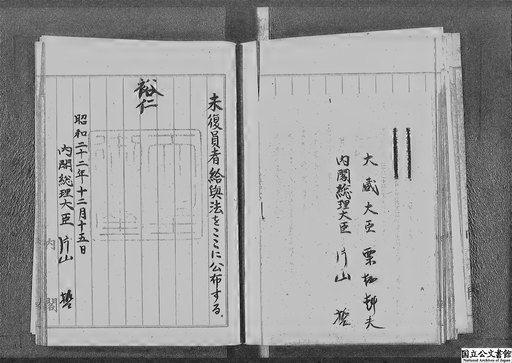 大蔵大臣 栗栖赳夫
内閣総理大臣 片山 哲
未復員者給與法をここに公布する。
裕仁
昭和二十二年十二月十五日
内閣総理大臣 片山 哲
内閣
国立公文書館
National Archives of Japan